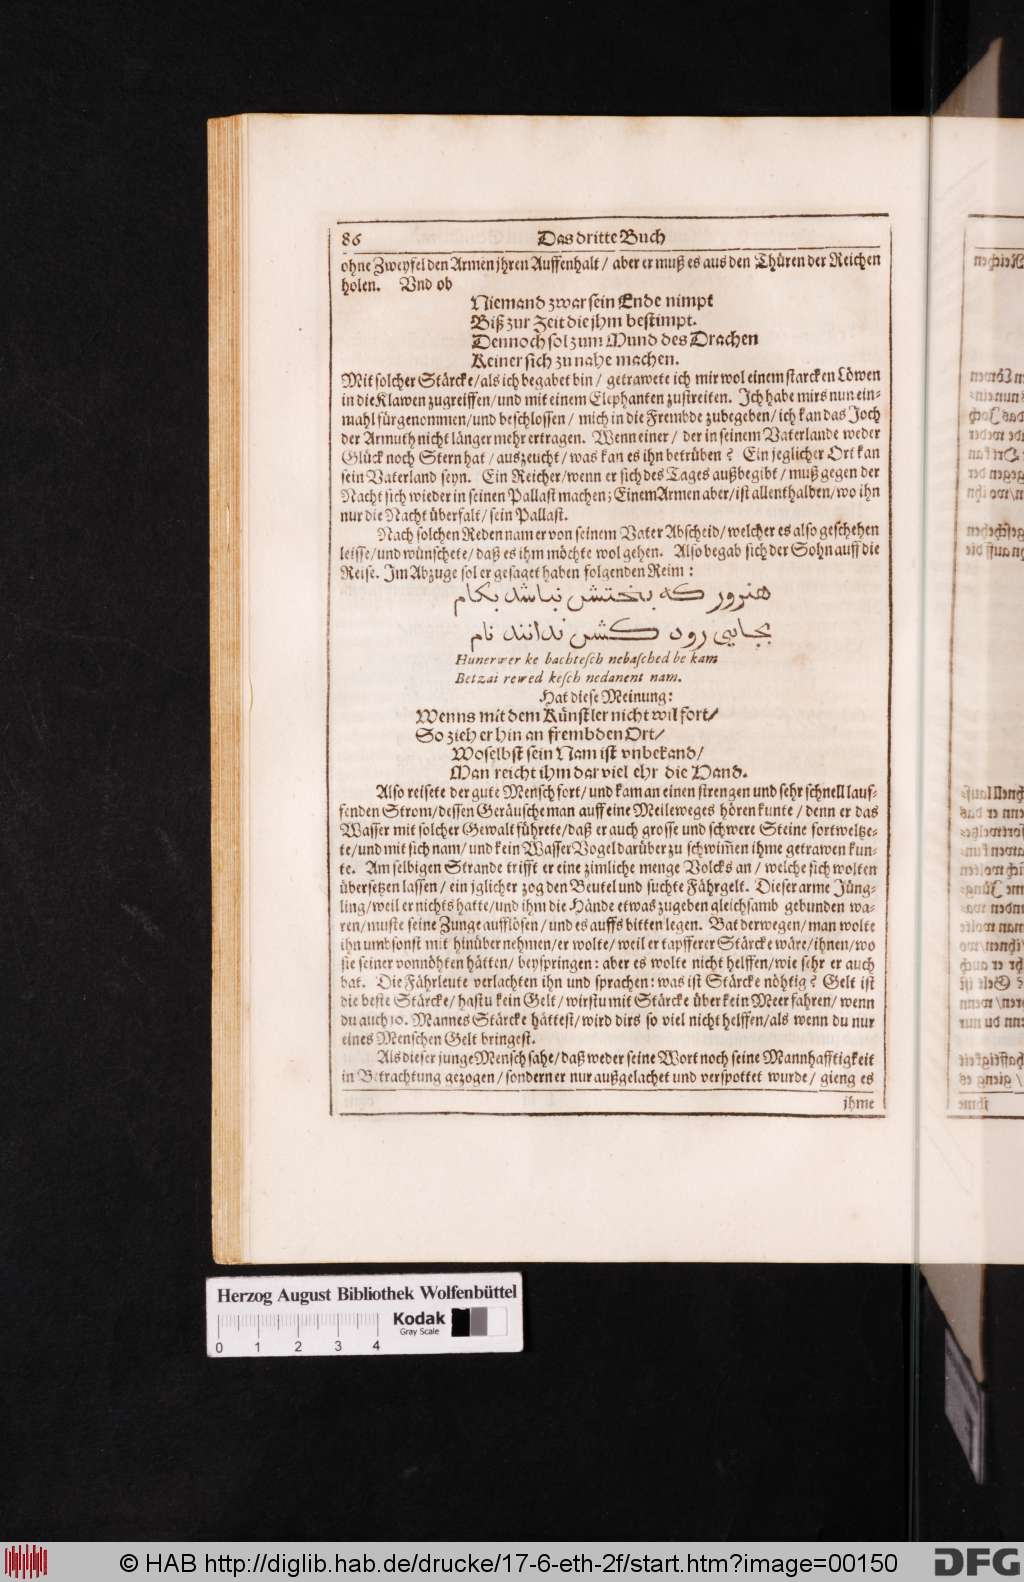 86 Das dritte Buch
ohne Zweyfel den Armen jhren Auffenhalt / aber er muß es aus den Thüren der Reichen
holen. Vnd ob
Niemand zwar sein Ende nimpt
Biß zur Zeit die jhm bestimpt.
Dennoch sol zum Mund des Drachen
Keiner sich zu nahe machen.
Mit solcher Stärcke / als ich begabet bin / getrawete ich mir wol einem starcken Löwen
in die Klawen zugreiffen / und mit einem Elephanten zustreiten. Ich habe mirs nun ein-
mahl fürgenommen / und beschlossen / mich in die Frembde zubegeben / ich kan das Joch
der Armuth nicht länger mehr ertragen. Wenn einer / der in seinem Vaterlande weder
Glück noch Stern hat / auszeucht / was kan es ihn betrüben? Ein jeglicher Ort kan
sein Vaterland seyn. Ein Reicher / wenn er sich des Tages außbegibt / muß gegen der
Nacht sich wieder in seinen Pallast machen; Einem Armen aber / ist allenthalben / wo ihn
nur die Nacht überfalt / sein Pallast.
Nach solchen Reden nam er von seinem Vater Abscheid / welcher es also geschehen
leisse / und wünschete / daß es ihm möchte wol gehen. Also begab sich der Sohn auff die
Reise. Im Abzuge sol er gesaget haben folgenden Reim:
هنرور که بختش نباشد بکام
بجایی رود کشس ندانند نام
Hunerwer ke bachtesch nebasched be kam
Betzai rewed kesch nedanent nam.
Hat diese Meinung:
Wenns mit dem Künstler nicht wil fort /
So zieh er hin an frembden Ort /
Woselbst sein Nam ist vnbekand /
Man reicht ihm dar viel ehr die Hand.
Also reisete der gute Mensch fort / und kam an einen strengen und sehr schnell lauf-
fenden Strom / dessen Geräusche man auff eine Meileweges hören kunte / denn er das
Wasser mit solcher Gewalt führete / daß er auch grosse und schwere Steine fortweltze-
te / und mit sich nam / und kein Wasser Vogel darüber zu schwim̃en ihme getrawen kun-
te. Am selbigen Strande trifft er eine zimliche menge Volcks an / welche sich wolten
übersetzen lassen / ein jglicher zog den Beutel und suchte Fährgelt. Dieser arme Jüng-
ling / weil er nichts hatte / und ihm die Hände etwas zugeben gleichsamb gebunden wa-
ren / muste seine Zunge aufflösen / und es auffs bitten legen. Bat derwegen / man wolte
ihn umbsonst mit hinüber nehmen / er wolte / weil er tapfferer Stärcke wäre / ihnen / wo
sie seiner vonnöhten hätten / beyspringen: aber es wolte nicht helffen / wie sehr er auch
bat. Die Fährleute verlachten ihn und sprachen: was ist Stärcke nöhtig? Gelt ist
die beste Stärcke / hastu kein Gelt / wirstu mit Stärcke über kein Meer fahren / wenn
du auch 10. Mannes Stärcke hättest / wird dirs so viel nicht helffen / als wenn du nur
eines Menschen Gelt bringest.
Als dieser junge Mensch sahe / daß weder seine Wort noch seine Mannhafftigkeit
in Betrachtung gezogen / sondern er nur außgelachet und verspottet wurde / gieng es
jhme
Herzog August Bibliothek Wolfenbüttel
Kodak
Gray Scale
0 1 2 3 4
© HAB http://diglib.hab.de/drucke/17-6-eth-2f/start.htm?image=00150
DFG